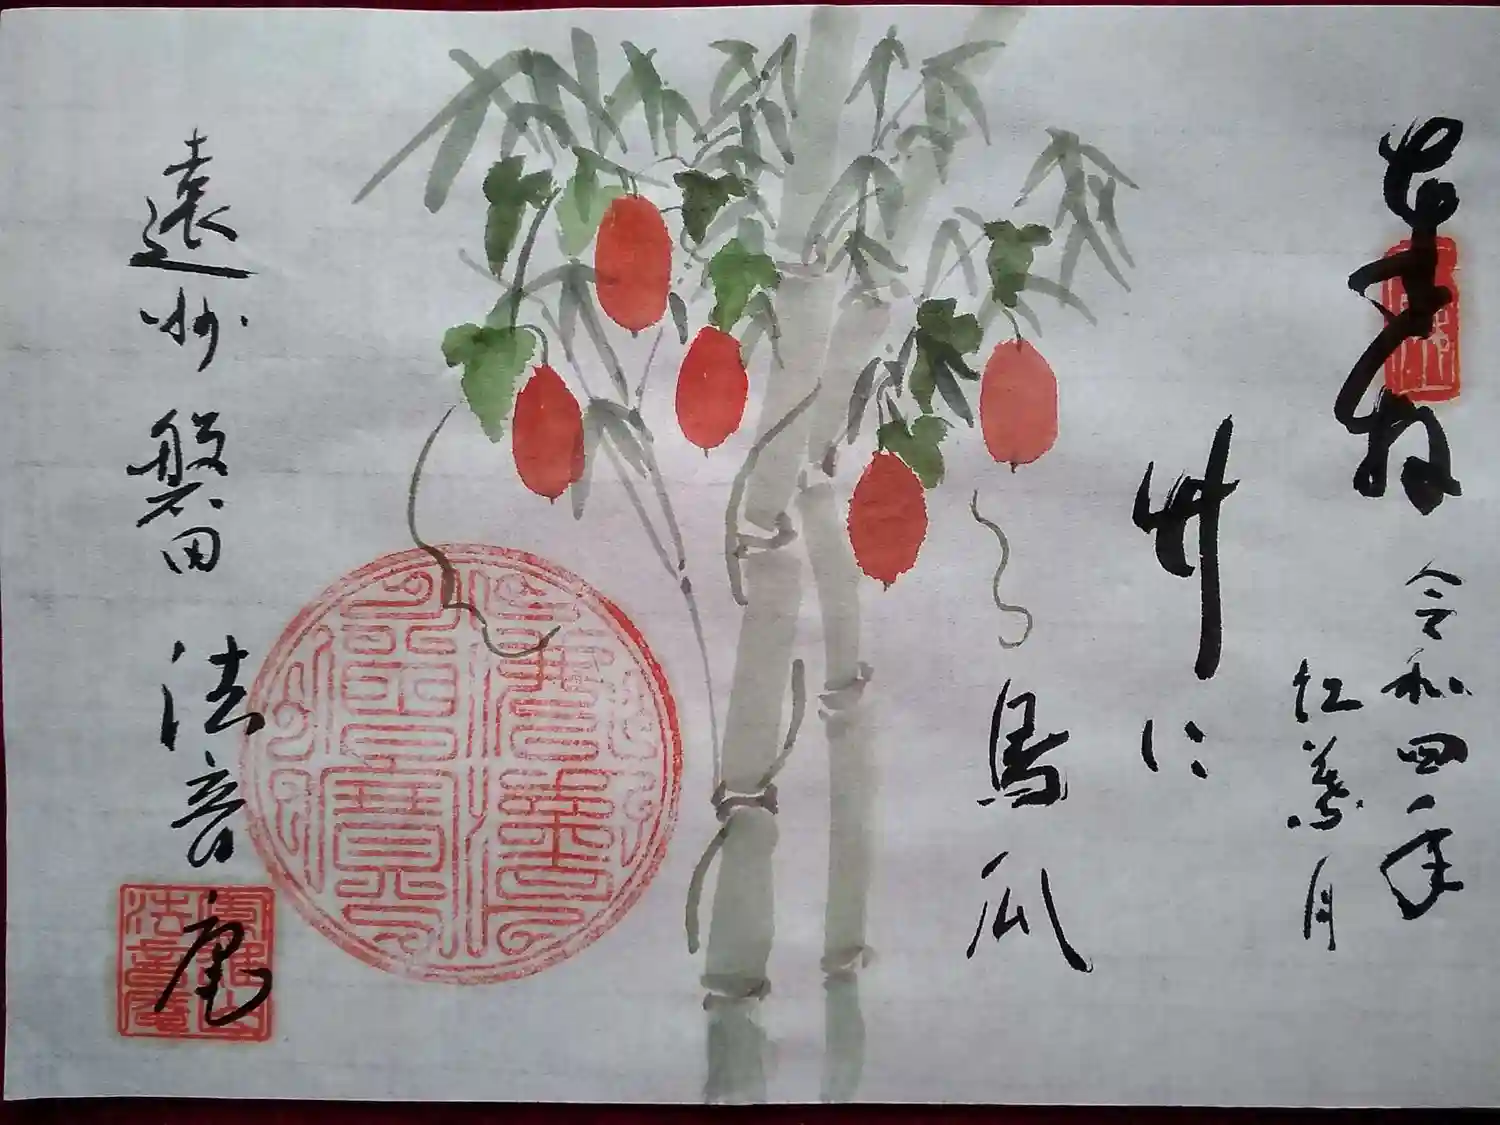 奉拝
令和四年
紅葉月
竹に
烏瓜
遠州 磐田 法音庵